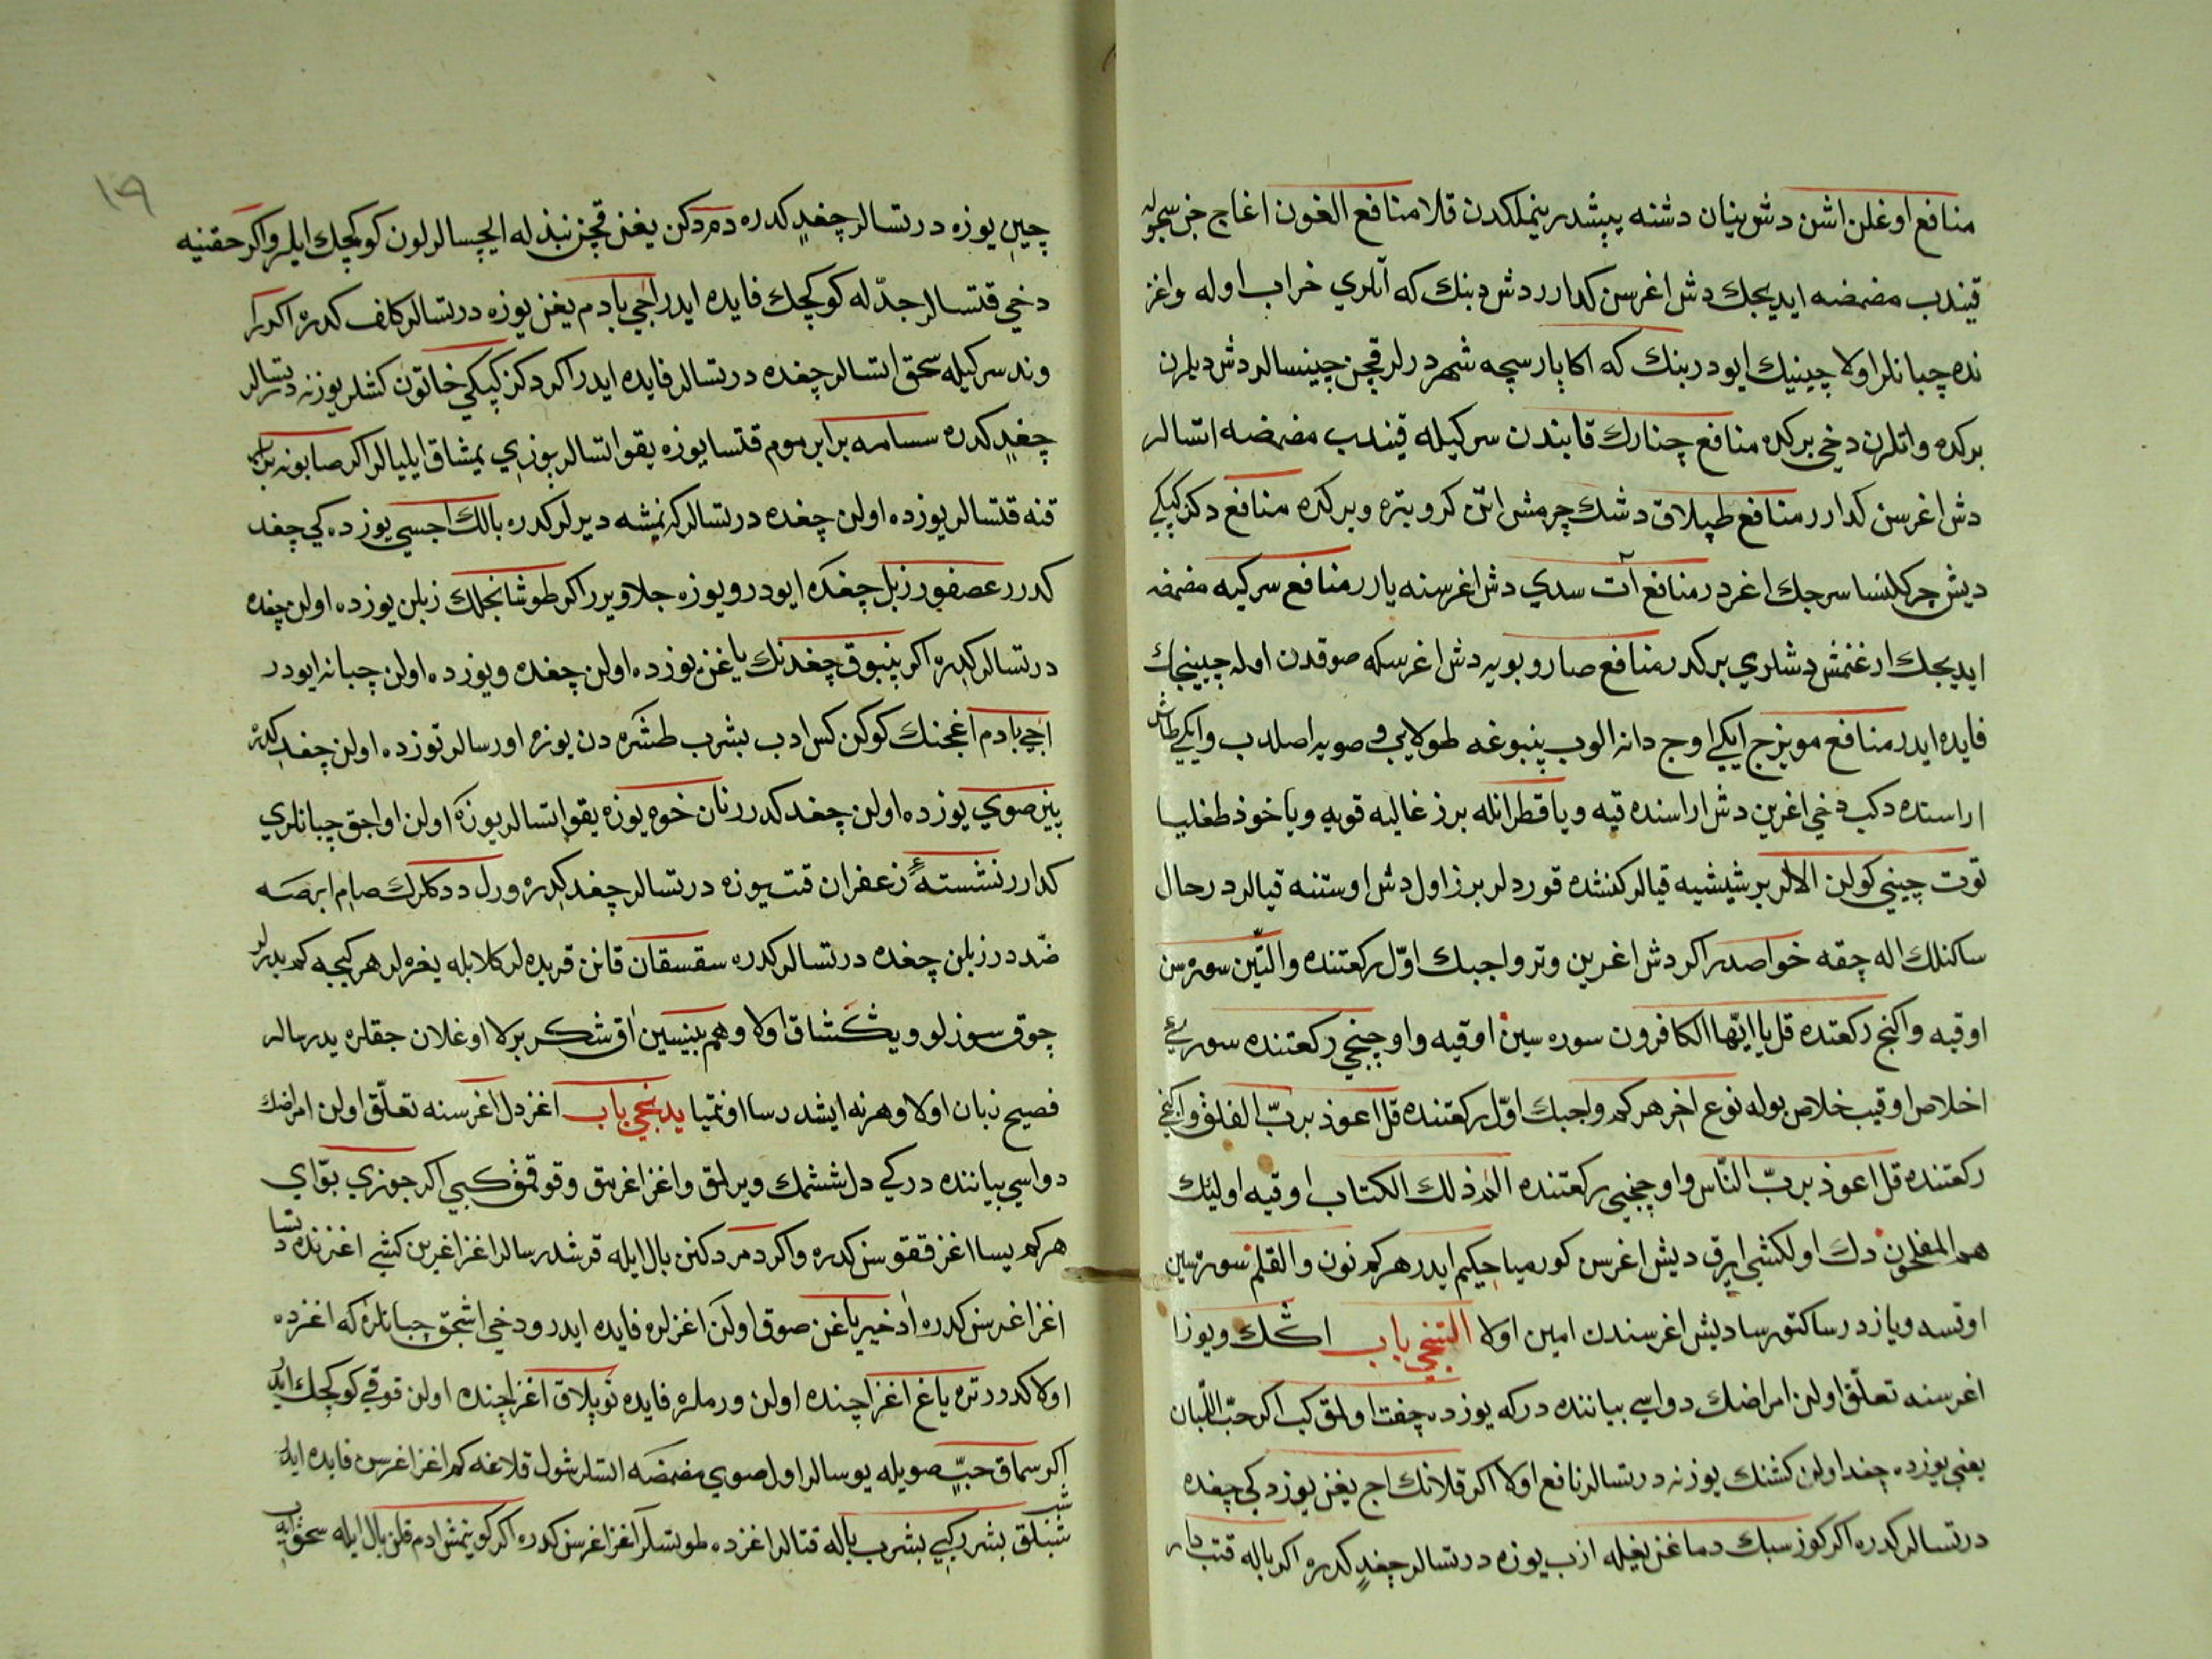 منافع اوغلن اشن دشوینان دشنه پپشدر ینملکدن قلا منافع الغون اغاج خن سجویله
قیندب مضمضه ایدیجك دش اغرسن كدارر دش دبنك كه آتلري خراب اوله واغز
نده چبانلر اولا چینیك ایودر بنك كه اكا پارسچه شهمردرلر قچن چینسالر دش دیلرن
بركده واتلرن دخي بركده منافع چنارك قابندن سركیله قیندب مضمضه اتسالر
دش اغرسن كدارر منافع طپلاق دشك چرمش اتن كرو بتره وبركدره منافع دكز كپكي
دیش چركلنسا سرجك اغردر منافع آت سدي دش اغرسنه یارر منافع سركیه مضمضه
ایدیجك ارغنمش دشلري بركدر منافع صارو بویه دش اغرسكه صوقدن اوله چیینجك
فایده ایدر منافع مویزج ایكي اوج دانه الوب پنبوغه طولایی وصویه اصلدب وایكي طاش
اراسنده دكب دخي اغرین دش اراسنده قیه ویا قطرانله برز غالیه قویه ویا خوذ طغلیا
توت چیني كولن الالر بر شیشیه قیالر كنشده قوردلر برز اول دش اوستنه قیالر درحال
ساكنلك اله چقه خواصدر اكر دش اغرین وتر واجبك اوّل ركعتنده والتین سوره سن
اوقیه واكنج ركعتده قل یا ایها الكافرون سوره سین اوقیه واوچنجي ركعتنده سورۀ
اخلاص اوقیب خلاص بوله نوع اخر هركم واجبك اوّل ركعتنده قل اعوذ بربّ الفلق وایكنجي
ركعتنده قل اعوذ بربّ النّاس واوچنجي ركعتنده الم ذلك الكتاب اوقیه اولیئك
هم المفلحون دك اولكشي ایرق دیش اغرسن كورمیا حكیم ایدر هركم نون والقلم سوره سین
اوتسه ویازدرسا كتورسا دیش اغرسندن امین اولا التنجي باب اكك ویوزا
اغرسنه تعلّق اولن امراضك دواسي بیاننده دركه یوزده چفت اولمق كب اكر حبّ اللّبان
یغني یوزده چغد اولن كشنك یوزنه درتسالر نافع اولا اكر قلانك اج یغن یوزدكي چغده
درتسالر كدره اكر كوز سبك دماغن یغیله ازب یوزه درتسالر چغد كدره اكر باله قتب
چین یوزه درتسالر چغد كدره دمردكن یغن قچن نبذله ایچسالر لون كوكچك ایلر واكر حقنیه
دخي قتسالر جدّله كوكچك فایده ایدر اجي بادم یغن یوزه درتسالر كلف كدره اكر
وند سركیله سحق اتسالر چغده درتسالر فایده ایدر اكر دكز كپكي خاتون كشلر یوزنه درتسالر
چغد كدره سسامه برابر موم قتسا یوزه یقو اتسالر یوزي یمشاق ایلیالر اكر صابونه برابر
قنه قتسالر یوزده اولن چغده درتسالر كه نمشه دیرلر كدره بالك اجسي یوزده كي چغد
كدرر عصفور زبل چغده ایودر ویوزه جلا ویرر اكر طوشانجلك زبلن یوزده اولن چغده
درتسالر كدره اكر پنبوق چغدنك یاغن یوزده اولن چغده ویوزده اولن چبانه ایودر
اجي بادم اغجنك كوكن كس ادب بشرب طشره دن یوزه اورسالر توزده اولن چغد كدره
پینر صوي یوزده اولن چغد كدرر نان خوه یوزه یقو اتسالر یوزه اولن اواجق چبانلري
كدارر نشستهء زعفران قتب یوزه درتسالر چغد كدره ورل ددكلرك صام ابرصه
ضددر زبلن چغده درتسالر كدره سقسقان قانن قریده لر كلابله یغره لر هر كیجه كم یدرلر
چوق سوزلو ویشكشاق اولا وهم بینیسین اق شكر برلا اوغلان جقلره یدرسالر
فصیح زبان اولا وهرنه ایشدرسا اونتمیا یدنجي باب اغز دل اغرسنه تعلّق اولن امراضك
دواسي بیاننده دركي دل ششمك ویرلمق واغز اغرمق وقوقمق كبي اكر جوزي بوّاي
هركم یسا اغز قوقوسن كدره واكر دمردكنن بال ایله قرشدرسالر اغز اغرین كشي اغزنده دتسا
اغز اغرسن كدره اذخیر یاغن صوق اولن اغزلره فایده ایدر ودخي اشجق چبانلره كه اغزده
اولا كدرر تره یاغ اغز اچنده اولن ورملره فایده توپلاق اغز اچنده اولن قوقي كوكچك ایدر
اكر سماق حبّ صویله یوسالر اول صوي مضمضه اتسلر شول قلاغه كم اغز اغرسن فایده ایدر
شنبلق بشرركبي بشرب باله قتالر اغزده طوتسلر اغز اغرسن كدره اكر كوینمش ادم قلن بال ایله سحق ایدب